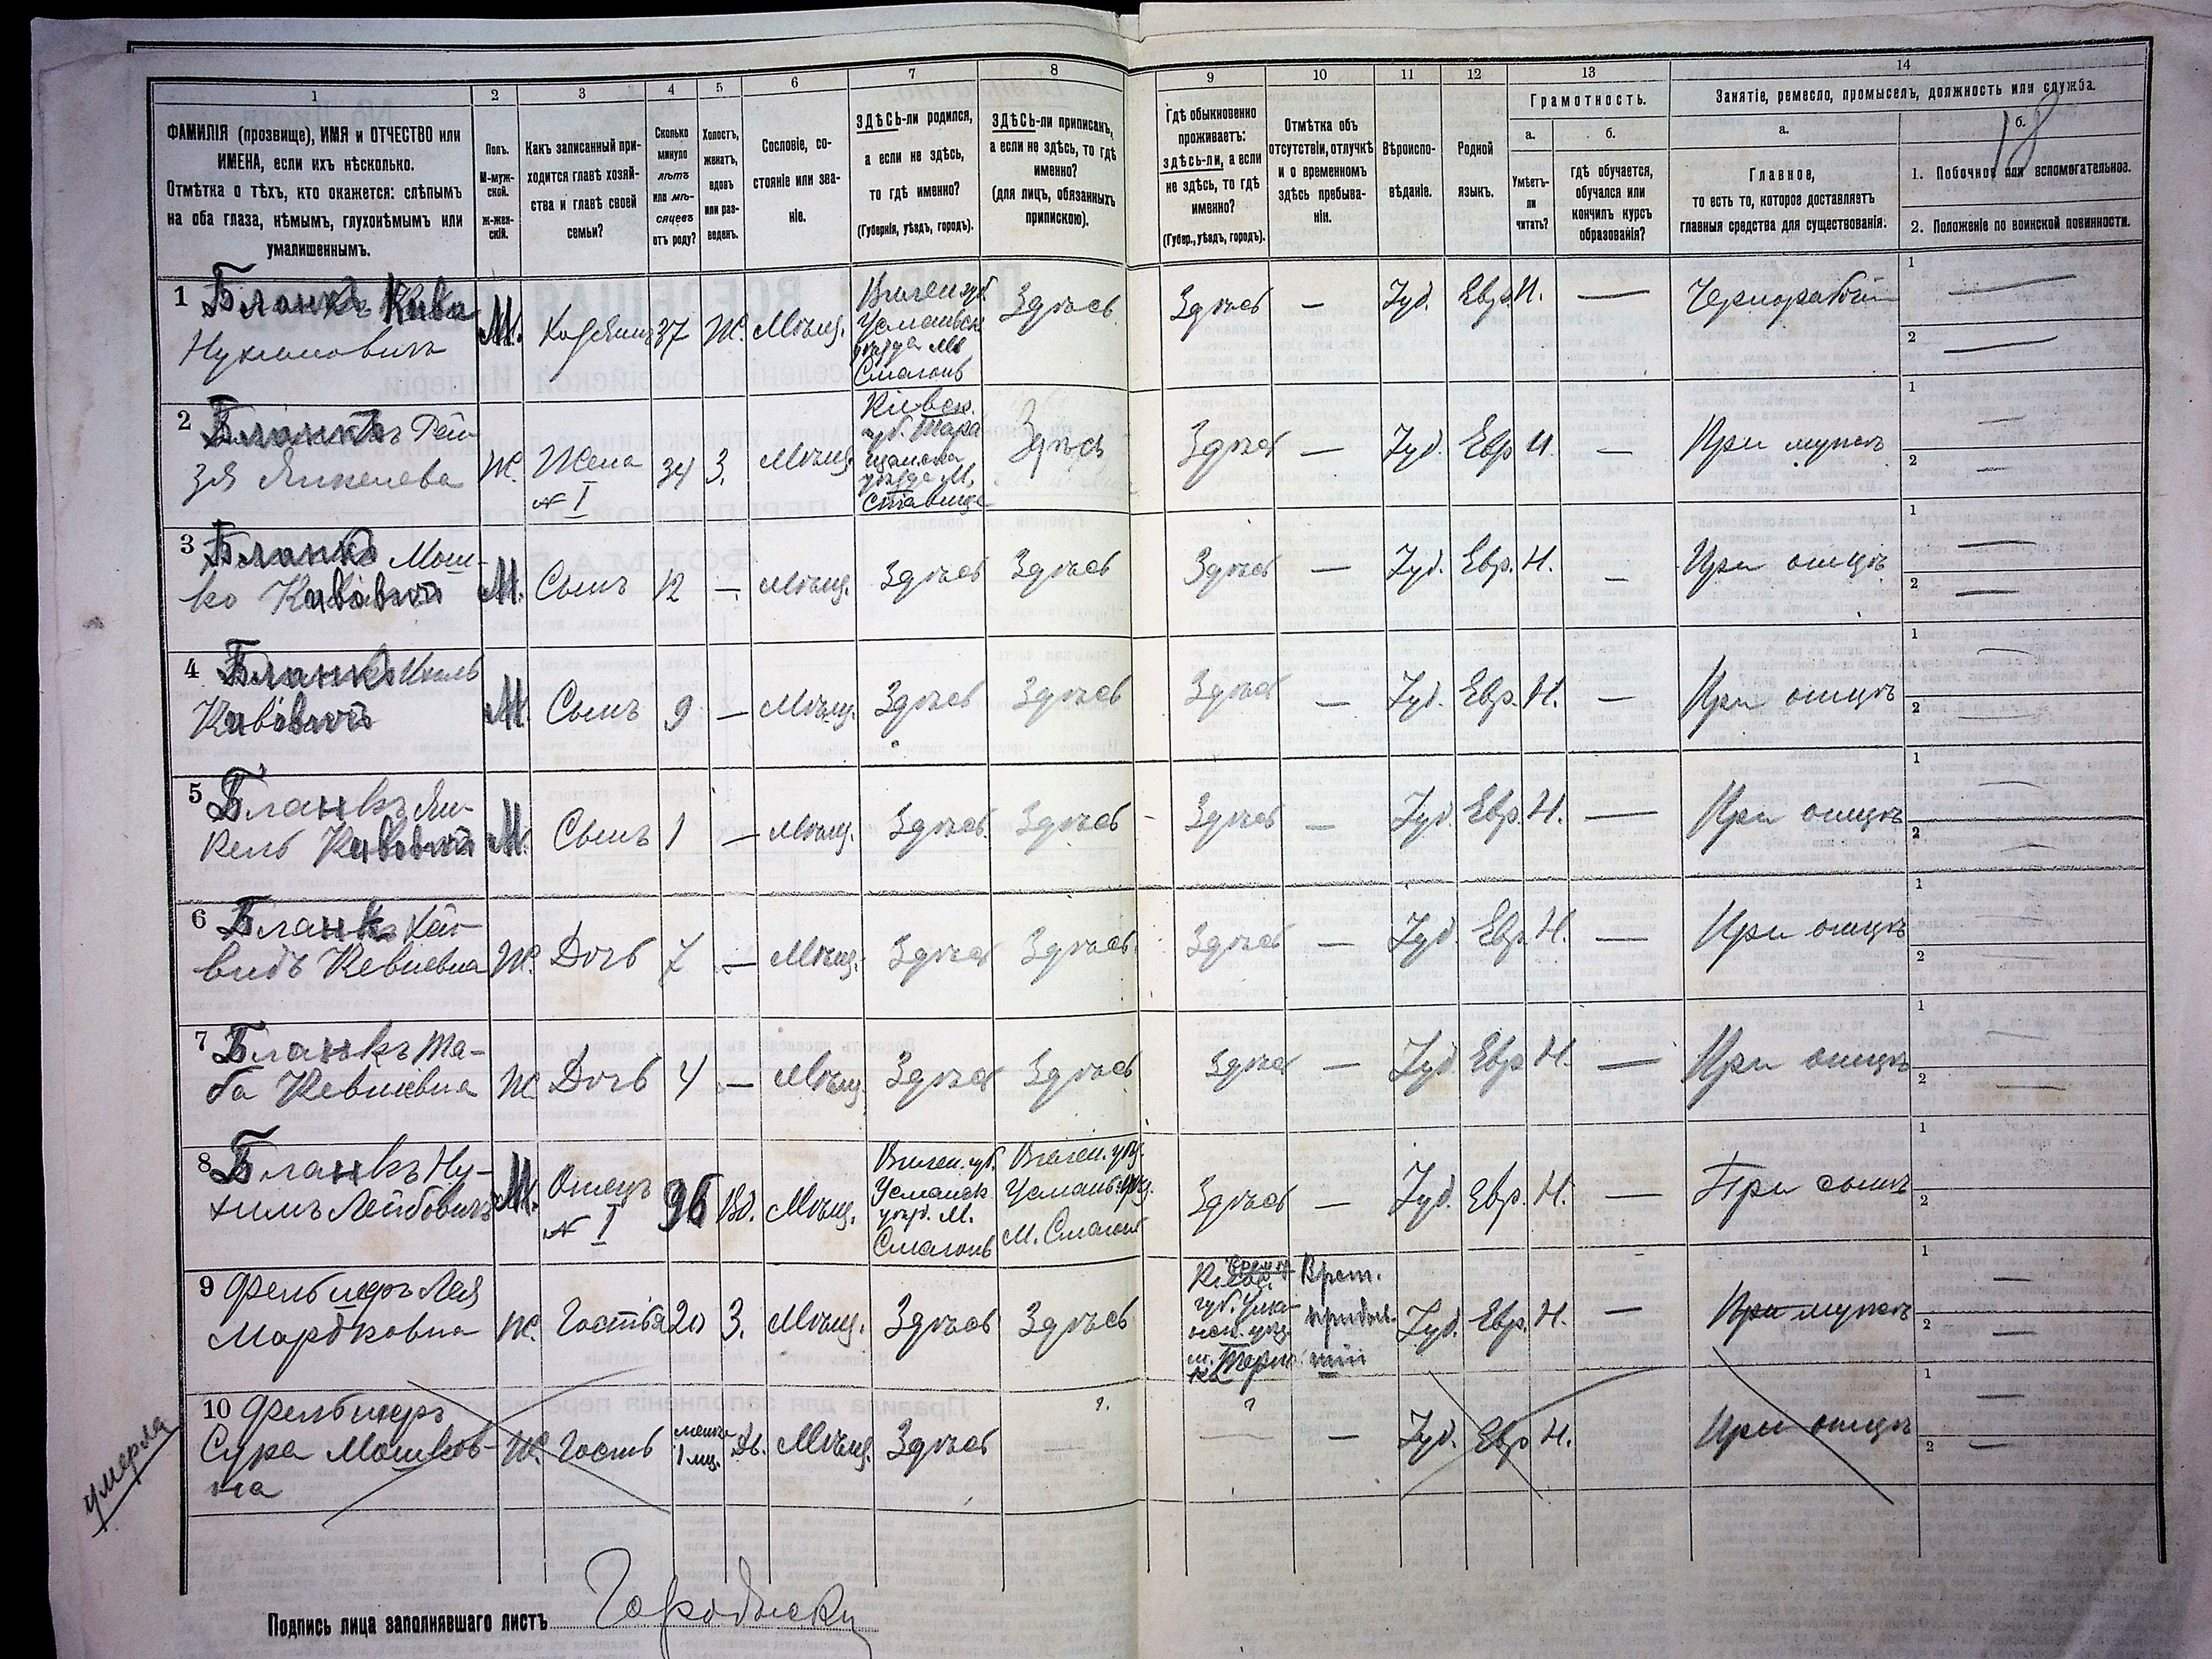 1 2 3 4 5 6 7 8 9 10 11 12 13 14
ФАМИЛІЯ (прозвище), ИМЯ и ОТЧЕСТВО или
ИМЕНА, если ихъ нѣсколько.
Отмѣтка о тѣхъ, кто окажется: слѣпымъ
на оба глаза, нѣмымъ, глухонѣмымъ или
умалишеннымъ.
Полъ.
М-муж-
ской.
ж-жен-
скій.
Какъ записанный при-
ходится главѣ хозяй-
ства и главѣ своей
семьи?
Сколько
минуло
лѣтъ
или мѣ-
сяцевъ
отъ роду?
Холостъ,
женатъ,
вдовъ
или раз-
веденъ.
Сословіе, со-
стояніе или зва-
ніе.
ЗДѢСЬ-ли родился,
а если не здѣсь,
то гдѣ именно?
(Губернія, уѣздъ, городъ).
ЗДѢСЬ-ли приписанъ,
а если не здѣсь, то гдѣ
именно?
(для лицъ, обязанныхъ
припискою).
Гдѣ обыкновенно
проживаетъ:
здѣсь-ли, а если
не здѣсь, то гдѣ
именно?
(Губер., уѣздъ, городъ).
Отмѣтка объ
отсутствіи, отлучкѣ
и о временномъ
здѣсь пребыва-
ніи.
Вѣроиспо-
вѣданіе.
Родной
языкъ.
Грамотность.
а.
Умѣетъ-
ли
читать?
б.
гдѣ обучается,
обучался или
кончилъ курсъ
образованія?
Занятіе, ремесло, промыселъ, должность или служба.
а.
Главное,
то есть то, которое доставляетъ
главныя средства для существованія.
б.
18
1. Побочное или вспомогательное.
2. Положеніе по воинской повинности.
1 Бланкъ Кива
Нухимовичъ
М.
37
Ж.
Мѣщ.
Здѣсь
Здѣсь
—
Іуд.
Евр.
Н.
—
Чернорабочій
1 —
2 —
2 Бланкъ Рей-
зя Янкелева
Ж.
Жена
№ I
34
З.
Мѣщ.
Кіевск.
губ. Тара
уѣзда М.
Ставище
Здѣсь
Здѣсь
—
Іуд.
Евр
Н.
—
При мужѣ
1 —
2 —
3 Бланкъ Мош-
ко
М.
Сынъ
12
—
Мѣщ.
Здѣсь
Здѣсь
Здѣсь
—
Іуд.
Евр.
Н.
—
При отцѣ
1 —
2 —
4 Бланкъ
М.
Сынъ
9
—
Мѣщ.
Здѣсь
Здѣсь
Здѣсь
—
Іуд.
Евр.
Н.
—
При отцѣ
1 —
2 —
5 Бланкъ Ян-
кель
М.
Сынъ
1
—
Мѣщ.
Здѣсь
Здѣсь
Здѣсь
—
Іуд.
Евр.
Н.
—
При отцѣ
1 —
2 —
6 Бланкъ
Ж.
Дочь
7
—
Мѣщ.
Здѣсь
Здѣсь
Здѣсь
—
Іуд.
Евр.
Н.
—
При отцѣ
1 —
2 —
7 Бланкъ Та-
ба
Ж.
Дочь
4
—
Мѣщ.
Здѣсь
Здѣсь
Здѣсь
—
Іуд.
Евр
Н.
—
При отцѣ
1 —
2 —
8 Бланкъ Ну-
химъ Лейбовичъ
М.
Отецъ
№ I
96
Вд.
Мѣщ.
Вилен. губ.
уѣзд. М.
Смагонь
М. Смагонь
Здѣсь
—
Іуд.
Евр.
Н.
—
При сынѣ
1
2
9 Фельбшеръ Лея
Мордковна
Ж.
Гостья
20
З.
Мѣщ.
Здѣсь
Здѣсь
Врем.
Іуд.
Евр.
Н.
—
При мужѣ
1 —
2 —
10 Фельбшеръ
Сура Мошков-
на
умерла
Ж.
Гость
1 мц.
Дѣ.
Мѣщ.
Здѣсь
?
?
—
Іуд.
Евр
Н.
При отцѣ
1 —
2 —
Подпись лица заполнявшаго листъ